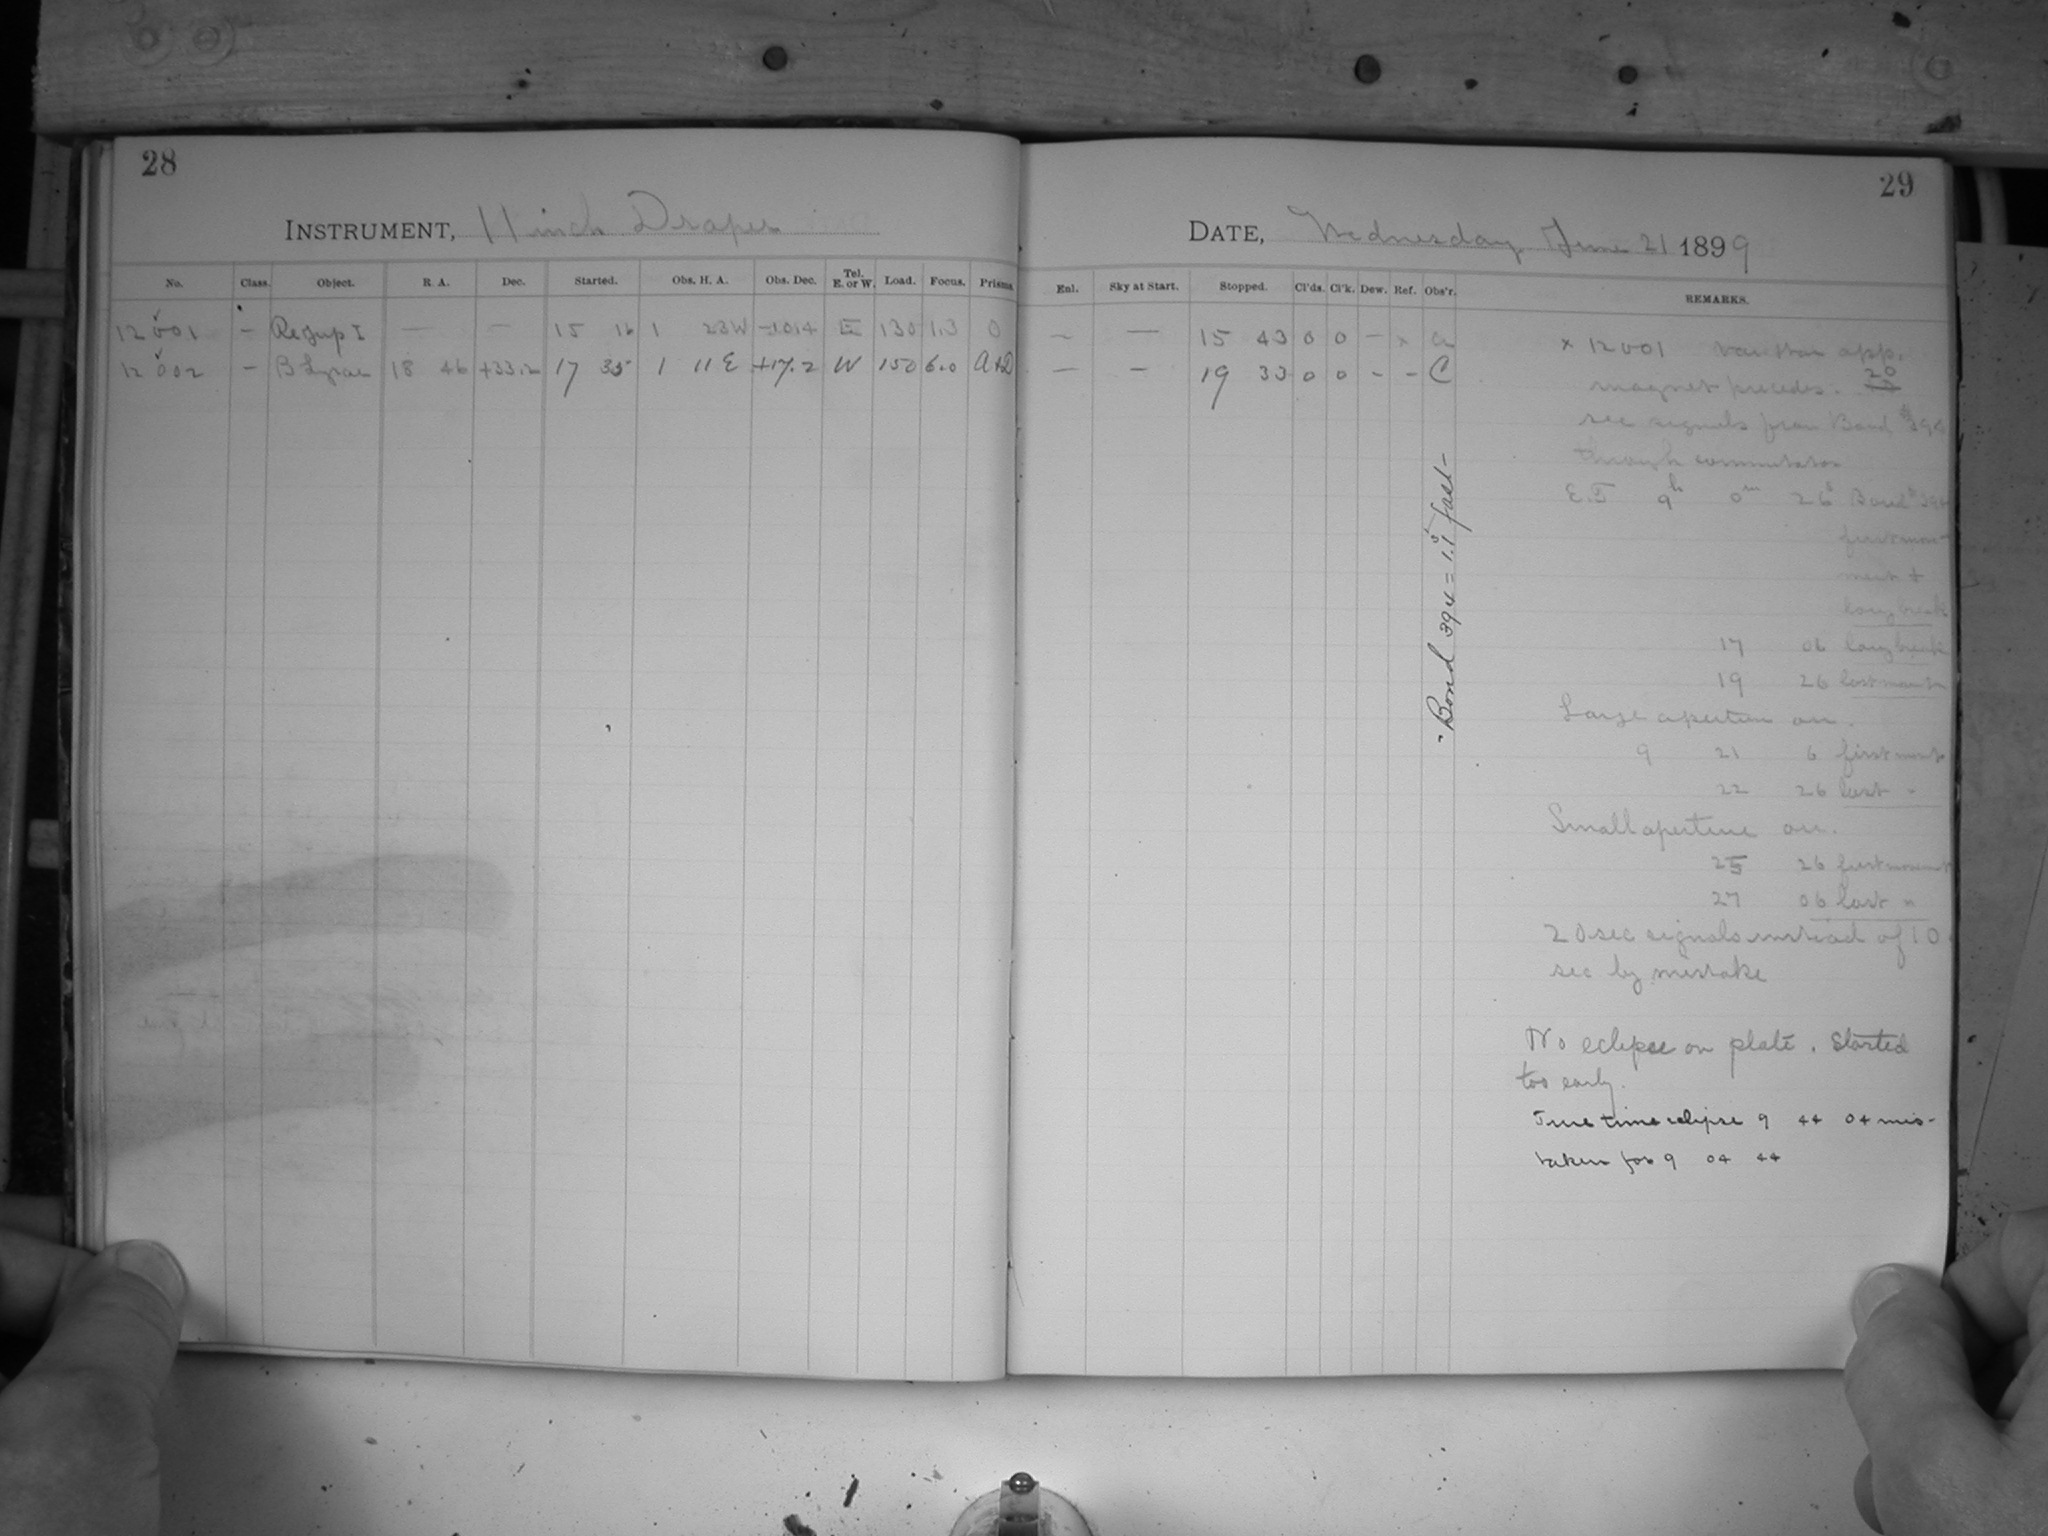 28
INSTRUMENT, 11 inch Draper
No. Class. Object. R. A. Dec. Started. Obs. H. A. Obs. Dec. Tel. E. or W. Load. Focus. Prisms.
12001 – Re Jup I — — 15 16 1 23W -10.4 E 130 1.3 0
12002 – B Lyrae 18 46 +33.2 17 35 1 11 E +17.2 W 150 6.0 A+D
29
DATE, Wednesday June 21 1899
Enl. Sky at Start. Stopped. Cl'ds. Cl'k. Dew. Ref. Obs'r. REMARKS.
— — 15 43 0 0 – x
— — 19 33 0 0 – – C
x 12001 app.
magnet precedes. 20
sec signals from Bond # 394
through commutator
E.T 9h 0m 26s Bond # 394
first move-
ment +
long break
17 06 long break
19 26 last
Large aperture on.
9 21 6 first
22 26 last "
Small aperture on.
25 26 first movement
27 06 last "
20 sec signals instead of 10
sec by mistake
No eclipse on plate. Started
too early.
True time eclipse 9 44 04 mis-
taken for 9 04 44
- Bond 394 = 1.1s fast -